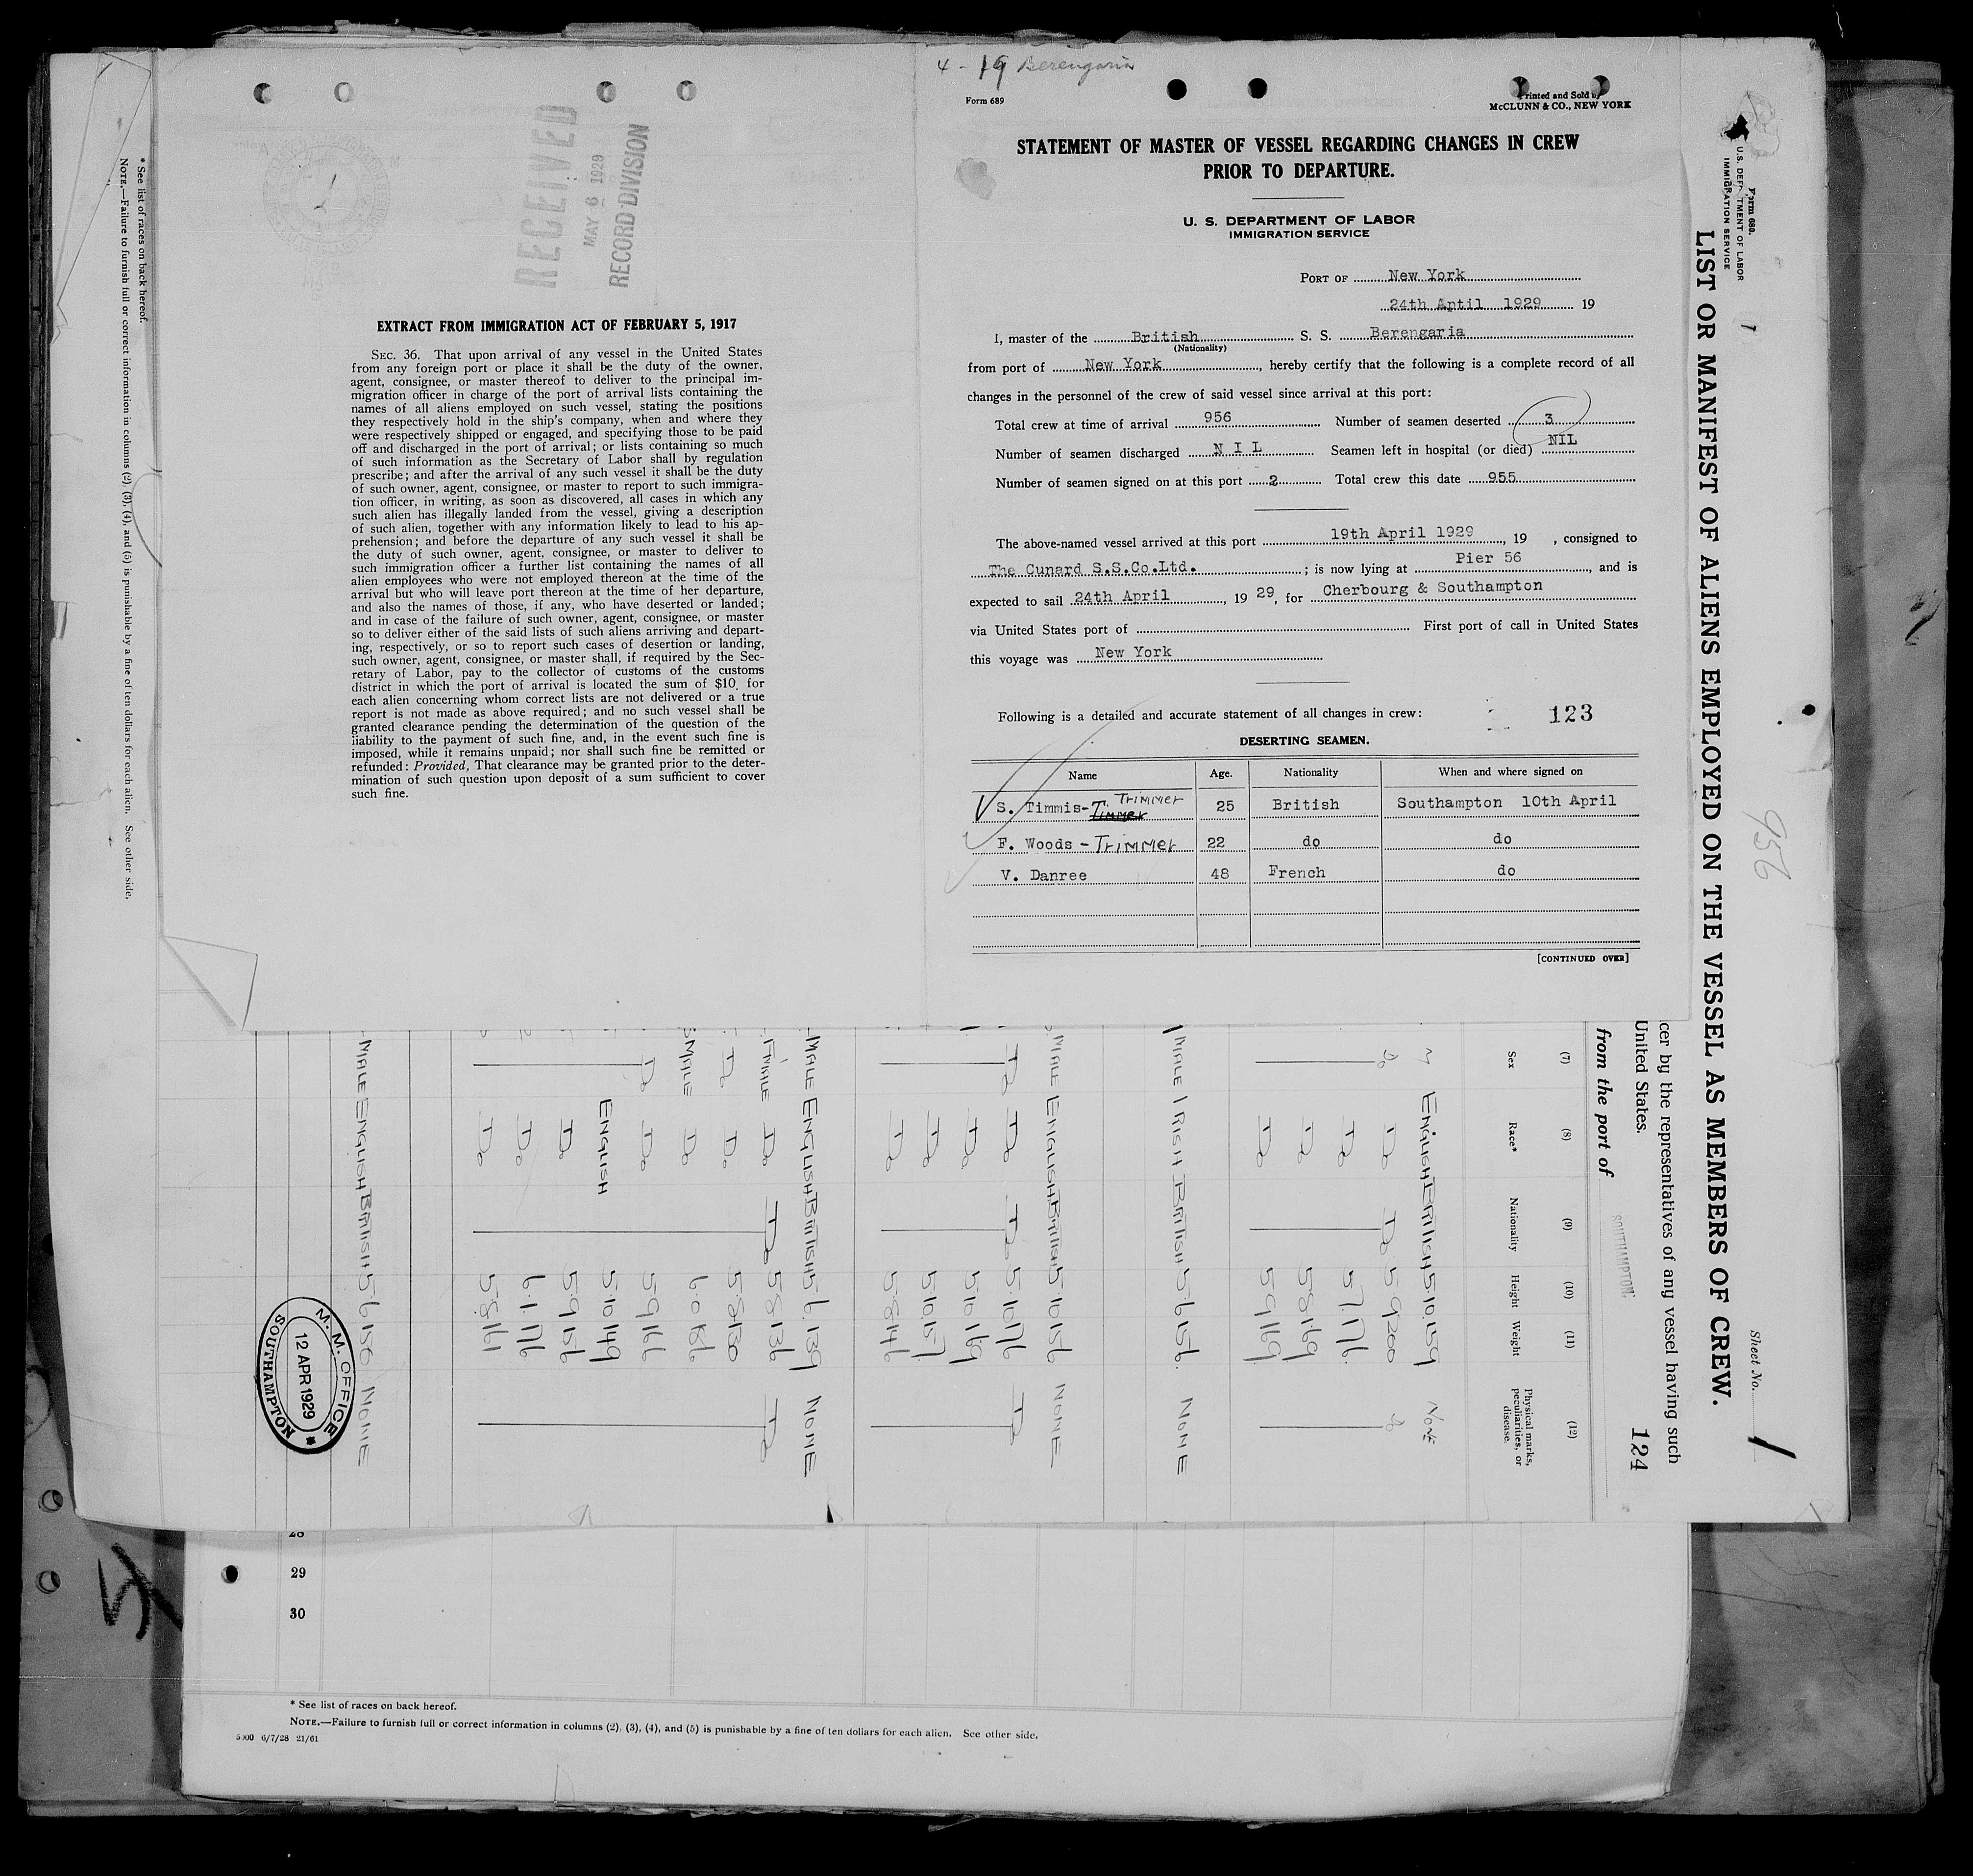 4 - 19 Berengaria
Form 689
Printed and Sold by
McCLUNN & CO., NEW YORK
STATEMENT OF MASTER OF VESSEL REGARDING CHANGES IN CREW
PRIOR TO DEPARTURE.
U. S. DEPARTMENT OF LABOR
IMMIGRATION SERVICE
PORT OF New York
24th April 1929 19
I, master of the British S. S. Berengaria
(Nationality)
from port of New York, hereby certify that the following is a complete record of all
changes in the personnel of the crew of said vessel since arrival at this port:
Total crew at time of arrival 956 Number of seamen deserted 3
Number of seamen discharged N I L Seamen left in hospital (or died) NIL
Number of seamen signed on at this port 2 Total crew this date 955
The above-named vessel arrived at this port 19th April 1929, 19 , consigned to
The Cunard S.S.Co.Ltd. ; is now lying at Pier 56, and is
expected to sail 24th April, 19 29, for Cherbourg & Southampton
via United States port of First port of call in United States
this voyage was New York
Following is a detailed and accurate statement of all changes in crew: 123
DESERTING SEAMEN.
Name Age. Nationality When and where signed on
S. Timmis- Trimmer 25 British Southampton 10th April
F. Woods - Trimmer 22 do do
V. Danree 48 French do
[CONTINUED OVER]
RECEIVED
MAY 6 1929
RECORD DIVISION
EXTRACT FROM IMMIGRATION ACT OF FEBRUARY 5, 1917
SEC. 36. That upon arrival of any vessel in the United States
from any foreign port or place it shall be the duty of the owner,
agent, consignee, or master thereof to deliver to the principal im-
migration officer in charge of the port of arrival lists containing the
names of all aliens employed on such vessel, stating the positions
they respectively hold in the ship's company, when and where they
were respectively shipped or engaged, and specifying those to be paid
off and discharged in the port of arrival; or lists containing so much
of such information as the Secretary of Labor shall by regulation
prescribe; and after the arrival of any such vessel it shall be the duty
of such owner, agent, consignee, or master to report to such immigra-
tion officer, in writing, as soon as discovered, all cases in which any
such alien has illegally landed from the vessel, giving a description
of such alien, together with any information likely to lead to his ap-
prehension; and before the departure of any such vessel it shall be
the duty of such owner, agent, consignee, or master to deliver to
such immigration officer a further list containing the names of all
alien employees who were not employed thereon at the time of the
arrival but who will leave port thereon at the time of her departure,
and also the names of those, if any, who have deserted or landed;
and in case of the failure of such owner, agent, consignee, or master
so to deliver either of the said lists of such aliens arriving and depart-
ing, respectively, or so to report such cases of desertion or landing,
such owner, agent, consignee, or master shall, if required by the Sec-
retary of Labor, pay to the collector of customs of the customs
district in which the port of arrival is located the sum of $10 for
each alien concerning whom correct lists are not delivered or a true
report is not made as above required; and no such vessel shall be
granted clearance pending the determination of the question of the
liability to the payment of such fine, and, in the event such fine is
imposed, while it remains unpaid; nor shall such fine be remitted or
refunded: Provided, That clearance may be granted prior to the deter-
mination of such question upon deposit of a sum sufficient to cover
such fine.
Form 680.
U. S. DEPARTMENT OF LABOR
IMMIGRATION SERVICE
956
Sheet No. 1
LIST OR MANIFEST OF ALIENS EMPLOYED ON THE VESSEL AS MEMBERS OF CREW.
cer by the representatives of any vessel having such
United States. 124
from the port of SOUTHAMPTON.
(7) (8) (9) (10) (11) (12)
Sex Race* Nationality Height Weight Physical marks, peculiarities, or disease
M ENGLISH BRITISH 5·10 159 NONE
Do Do Do 5 9 200 Do
Do 5 7 176
Do 5 8 169
Do 5 9 169
MALE IRISH BRITISH 5 6 156 NONE
MALE ENGLISH BRITISH 5 10 156 NONE
Do Do Do 5 10 176 Do
Do 5 10 169
Do 5 10 157
Do 5 8 146
MALE ENGLISH BRITISH 5 6 139 NONE
FMALE Do Do 5 8 136 Do
Do Do 5 8 130
MALE Do 6 0 186
Do Do 5 9 166
ENGLISH 5 10 149
Do 5 9 156
Do 6 1 176
Do 5 8 161
MALE ENGLISH BRITISH 5 6 156 NONE
M. M. OFFICE
12 APR 1929
SOUTHAMPTON
* See list of races on back hereof.
NOTE.—Failure to furnish full or correct information in columns (2), (3), (4), and (5) is punishable by a fine of ten dollars for each alien. See other side.
28
29
30
* See list of races on back hereof.
NOTE.—Failure to furnish full or correct information in columns (2), (3), (4), and (5) is punishable by a fine of ten dollars for each alien. See other side.
5000 6/7/28 21/61